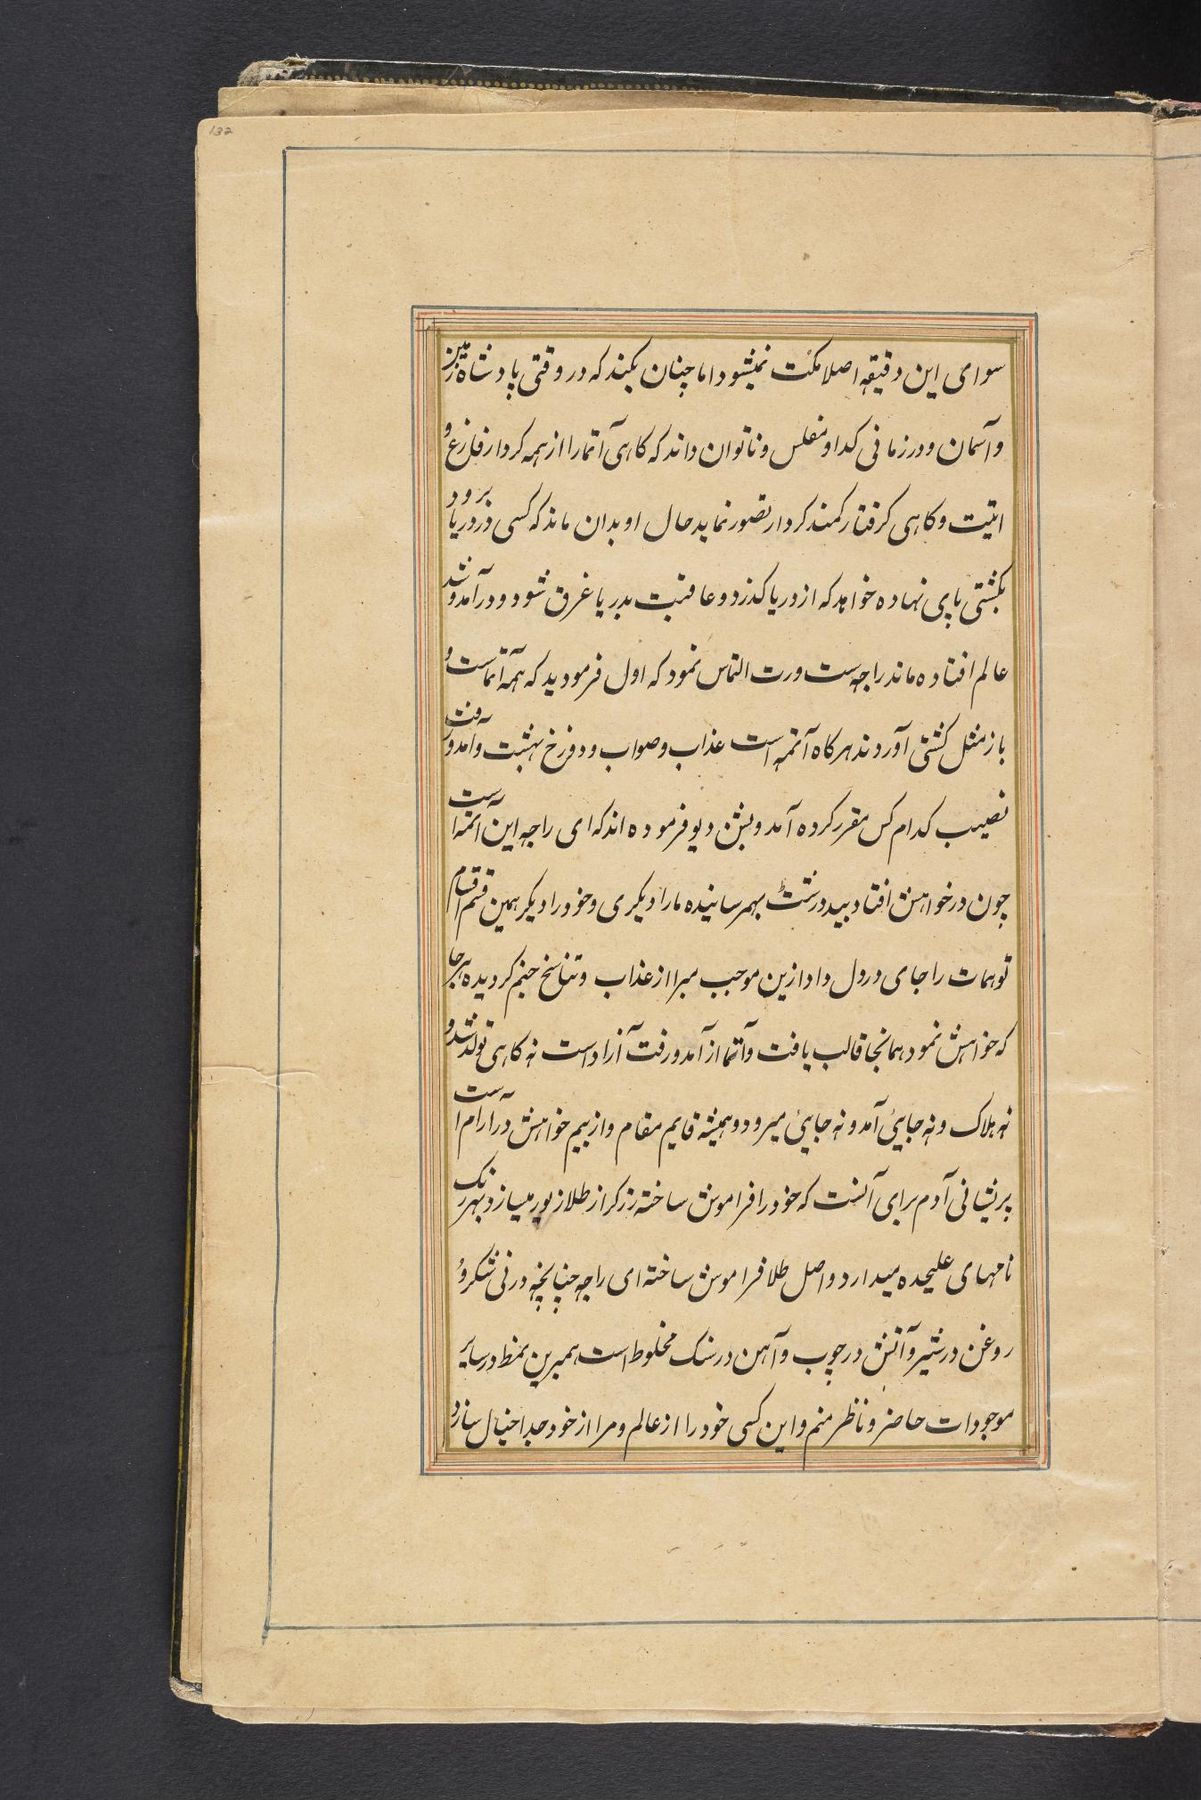 132
سوای این دقیقه اصلا مکت نمیشود اما چنان یکیند که در وقتی پادشاه زمین
و آسمان و در زمانی کدا و مفلس و ناتوان داند که کاهی آتما را از همه کردار فارغ و
اتیت و کاهی کرفتار کمند کردار تصور نماید حال او بدان ماند که کسی در دریا برود
بکشتی پای نهاده خواهد که از دریا کذرد و عاقبت بدریا غرق شود و در آمد و شد
عالم افتاده ماند راجه ست ورت التماس نمود که اول فرمودید که همه آتماست و
باز مثل کشتی آوردند هرکاه آتمه است عذاب و صواب و دوزخ بهشت و آمد و رفت
نصیب کدام کس مقرر کرده آمد و بشن دیو فرموده اند که ای راجه این آتمه است
چون در خواهش افتاد بید درشت بهمرسانیده ما را دیکری و خود را دیکر همین قسم اقسام
توهمات را جای در دل داد ازین موجب مبرا از عذاب و تناسخ جنم کردیده هر جا
که خواهش نمود همانجا قالب یافت و آتما از آمد و رفت آزاد است نه کاهی تولد شد و
نه هلاک و نه جایئ آمد و نه جایئ میرود و همیشه قایم مقام و از بیم خواهش در آرام است
پریشانی آدم برای آنست که خود را فراموش ساخته زرکر از طلا زیور میسازد بهر رنک
نامهای علیحده میدارد و اصل طلا فراموش ساخته ای راجه چنانچه در نی شکر و
روغن در شیر و آتش در چوب و آهن در سنک مخلوط است همبرین نمط در سایر
موجودات حاضر و ناظر منم و این کسی خود را از عالم و مرا از خود جدا خیال سازد